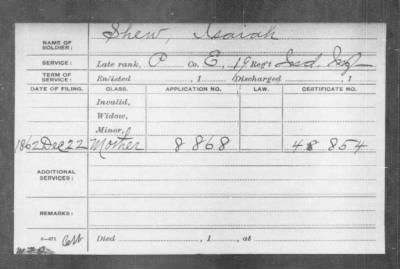 NAME OF SOLDIER: Shew, Isaiah
SERVICE: Late rank, P Co. E, 19 Reg't Ind. Inf
TERM OF SERVICE: Enlisted , 1 Discharged , 1
DATE OF FILING. CLASS. APPLICATION NO. LAW. CERTIFICATE NO.
Invalid,
Widow,
Minor,
1862 Dec 22 Mother 8 868 48 854
ADDITIONAL SERVICES:
REMARKS:
Died , 1 , at